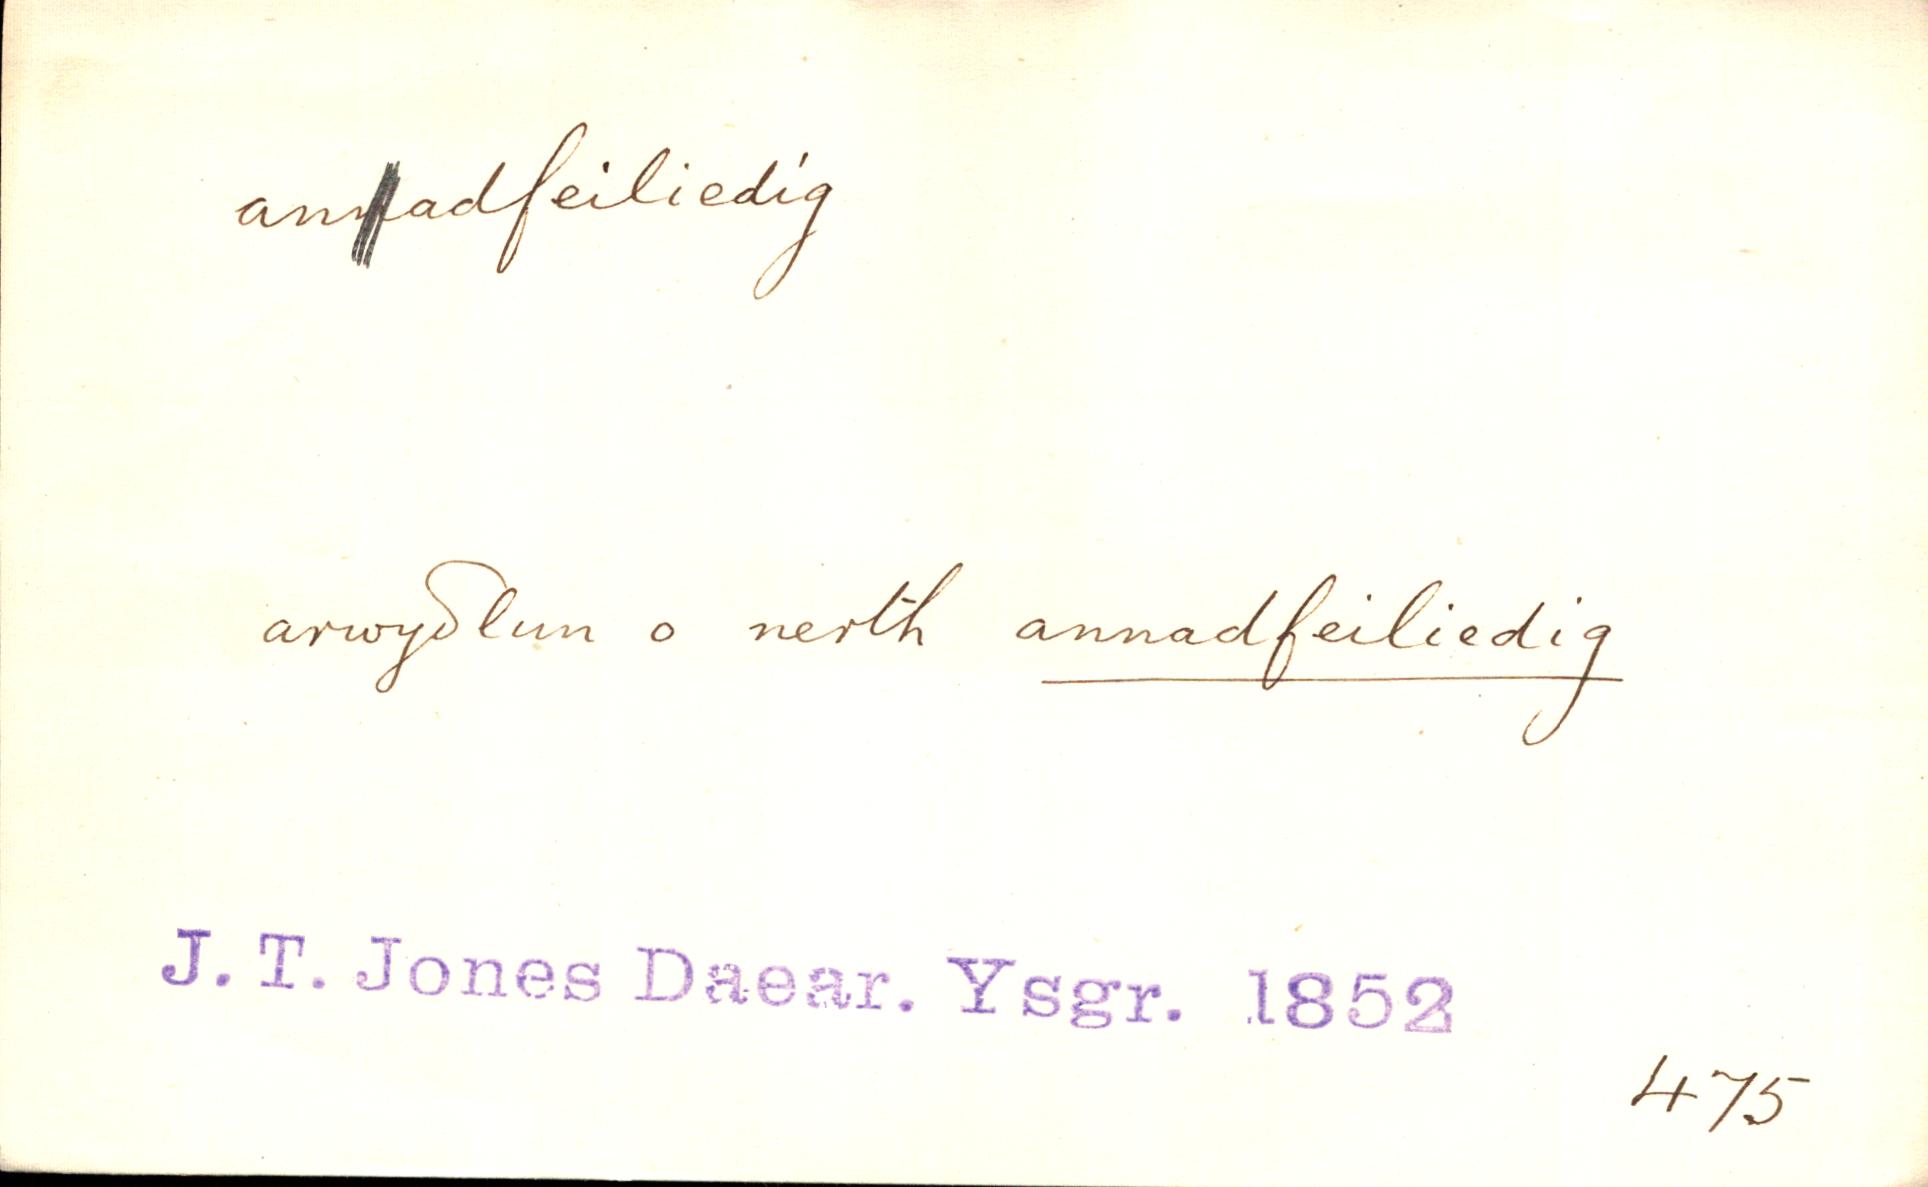 anadfeiliedig
arwyδlun o nerth annadfeiliedig
J. T. Jones Daear. Ysgr. 1852
475